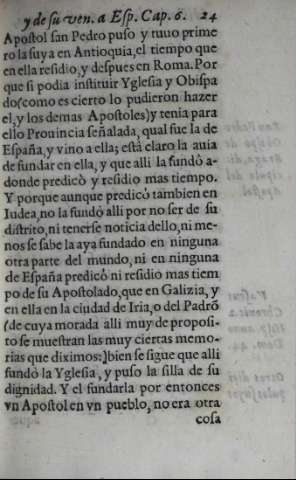 y de su ven. a Esp. Cap. 6. 24
Apostol san Pedro puso y tuuo prime
ro la suya en Antioquia, el tiempo que
en ella residio, y despues en Roma. Por
que si podia instituir Yglesia y Obispa
do (como es cierto lo pudieron hazer
el, y los demas Apostoles) y tenia para
ello Prouincia señalada, qual fue la de
España, y vino a ella; está claro la auia
de fundar en ella, y que alli la fundò a-
donde predicò y residio mas tiempo.
Y porque aunque predicó tambien en
Iudea, no la fundó alli por no ser de su
distrito, ni tenerse noticia dello, ni me-
nos se sabe la aya fundado en ninguna
otra parte del mundo, ni en ninguna
de España predicó ni residio mas tiem
po de su Apostolado, que en Galizia, y
en ella en la ciudad de Iria, o del Padrō
(de cuya morada alli muy de proposi-
to se muestran las muy ciertas memo-
rias que diximos:) bien se sigue que alli
fundó la Yglesia, y puso la silla de su
dignidad. Y el fundarla por entonces
vn Apostol en vn pueblo, no era otra
cosa